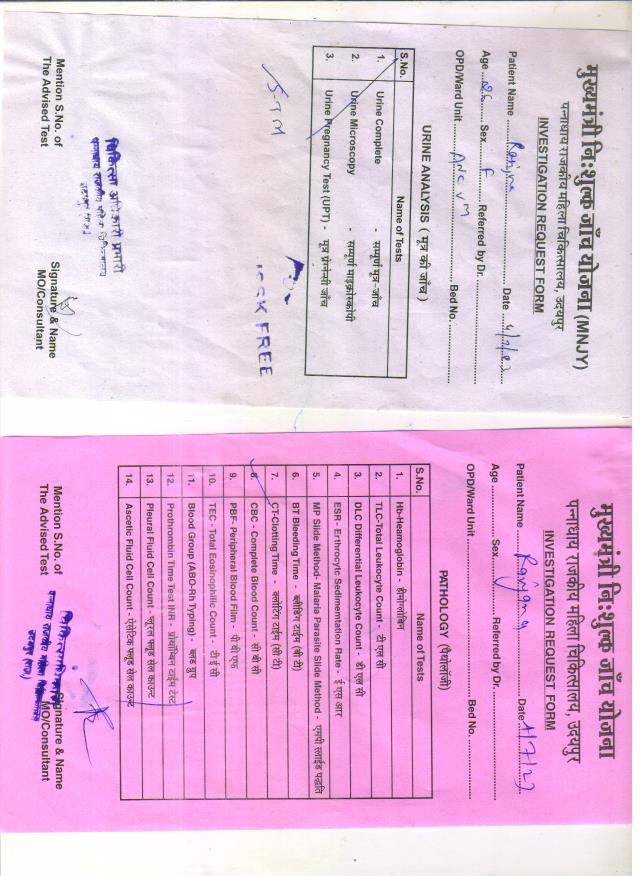 मुख्यमंत्री निःशुल्क जाँच योजना (MNJY)
पन्नाधाय राजकीय महिला चिकित्सालय, उदयपुर
INVESTIGATION REQUEST FORM
Patient Name Ranjna Date
Age 26 Sex F Referred by Dr.
OPD/Ward Unit ANC Bed No.
URINE ANALYSIS ( मूत्र की जाँच )
S.No. Name of Tests
1. Urine Complete - सम्पूर्ण मूत्र-जाँच
2. Urine Microscopy - सम्पूर्ण माइक्रोस्कोपी
3. Urine Pregnancy Test (UPT) - मूत्र प्रेगनेन्सी जाँच
JSSK FREE
चिकित्सा अधिकारी प्रभारी
पन्नाधाय राजकीय महिला चिकित्सालय
उदयपुर (राज.)
Mention S.No. of Signature & Name
The Advised Test MO/Consultant
मुख्यमंत्री निःशुल्क जाँच योजना
पन्नाधाय राजकीय महिला चिकित्सालय, उदयपुर
INVESTIGATION REQUEST FORM
Patient Name Ranjana Date
Age Sex Referred by Dr.
OPD/Ward Unit Bed No.
PATHOLOGY (पैथोलॉजी)
S.No. Name of Tests
1. Hb-Heamoglobin - हीमोग्लोबिन
2. TLC-Total Leukocyte Count - टी एल सी
3. DLC Differential Leukocyte Count - डी एल सी
4. ESR - Erthrocytc Sedimentation Rate - ई एस आर
5. MP Slide Method- Malaria Parasite Slide Method - एमपी स्लाईड पद्धति
6. BT Bleeding Time - ब्लीडिंग टाईम (बी टी)
7. CT-Clotting Time - क्लोटिंग टाईम (सी टी)
8. CBC - Complete Blood Count - सी बी सी
9. PBF- Peripheral Blood Film - पी बी एफ
10. TEC -Total Eosinophilic Count - टी ई सी
11. Blood Group (ABO-Rh Typing) - ब्लड ग्रुप
12. Prothrombin Time Test INR - प्रोथ्रॉम्बिन टाईम टेस्ट
13. Pleural Fluid Cell Count - प्लूरल फ्लूड सेल काउन्ट
14. Ascetic Fluid Cell Count - ऐसेटिक फ्लूड सेल काउन्ट
पन्नाधाय राजकीय महिला चिकित्सालय
उदयपुर (राज.)
Mention S.No. of Signature & Name
The Advised Test MO/Consultant